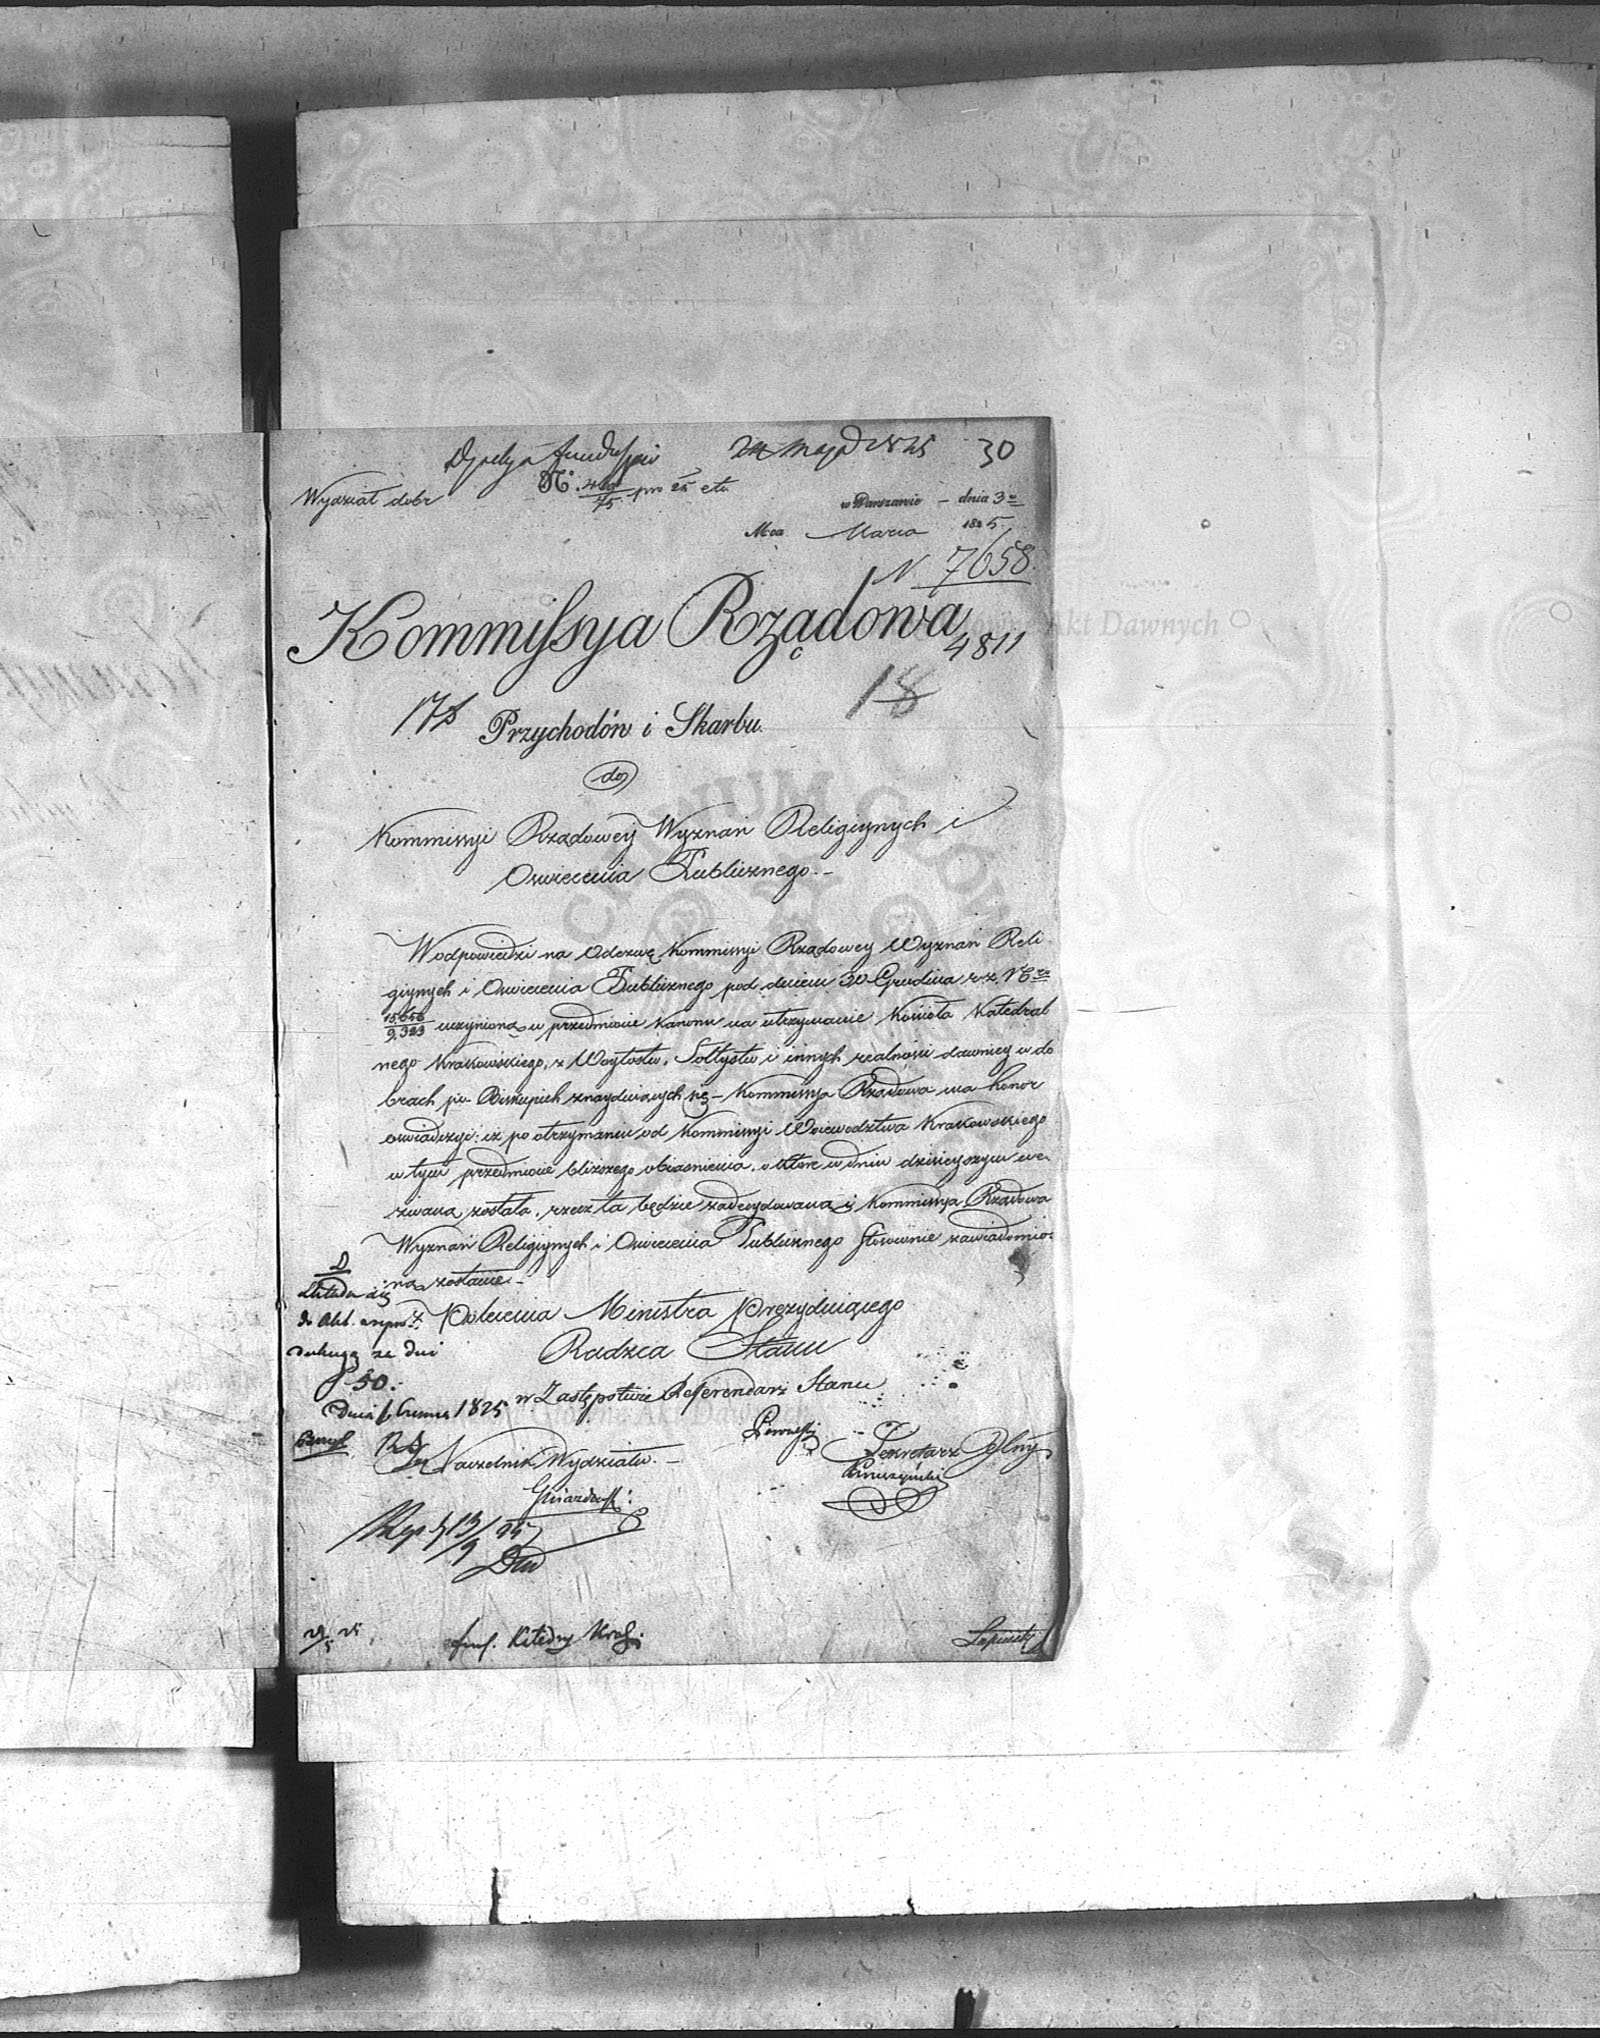 24 Maja 1825 30
Wydział dobr
w Warszawie – dnia 3go
Mca Marca 1825.
N 7658.
Kommissya Rządowa
4811
18
Przychodów i Skarbu.
do
Kommissyi Rządowey Wyznań Religiynych i
Oswiecenia Publicznego. –
W odpowiedzi na Odezwę Kommissyi Rządowey Wyznań Reli
giynych i Oswiecenia Publicznego pod dniem 30 Grudnia r. z. N
15656
9,323 uczynioną w przedmiocie Kanonu na utrzymanie Kościoła Katedral
nego Krakowskiego, z Woytostw, Sołtystw i innych realnosci dawniey w do
brach po Biskupich znayduiących się – Kommissya Rządowa ma honor
oswiadczyć: iż po otrzymaniu od Kommissyi Woiewodztwa Krakowskiego
w tym przedmiocie bliższego obiasnienia, o które w dniu dzisieyszym we
zwana została, rzecz ta będzie zadecydowana i Kommissya Rządowa
Wyznań Religiynych i Oswiecenia Publicznego stosownie zawiadomio
na zostanie. –
z Polecenia Ministra Prezyduiącego
Radzca Stanu
w Zastępstwie Referendarz Stanu
50.
Dnia 6 Czerwca 1825
Naczelnik Wydziału. –
Sekretarz Jlny
fund. Katedry Krak